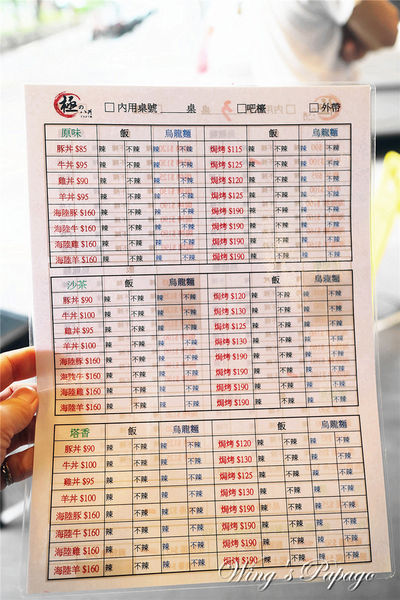 極の
□內用桌號____桌 □吧檯 □外帶
原味 飯 烏龍麵 飯 烏龍麵
豚丼$85 辣 不辣 辣 不辣 焗烤 $115 辣 不辣 辣 不辣
牛丼$95 辣 不辣 辣 不辣 焗烤 $125 辣 不辣 辣 不辣
雞丼$90 辣 不辣 辣 不辣 焗烤 $120 辣 不辣 辣 不辣
羊丼$95 辣 不辣 辣 不辣 焗烤 $125 辣 不辣 辣 不辣
海陸豚$160 辣 不辣 辣 不辣 焗烤 $190 辣 不辣 辣 不辣
海陸牛$160 辣 不辣 辣 不辣 焗烤 $190 辣 不辣 辣 不辣
海陸雞$160 辣 不辣 辣 不辣 焗烤 $190 辣 不辣 辣 不辣
海陸羊$160 辣 不辣 辣 不辣 焗烤 $190 辣 不辣 辣 不辣
沙茶 飯 烏龍麵 飯 烏龍麵
豚丼$90 辣 不辣 辣 不辣 焗烤 $120 辣 不辣 辣 不辣
牛丼$100 辣 不辣 辣 不辣 焗烤 $130 辣 不辣 辣 不辣
雞丼$95 辣 不辣 辣 不辣 焗烤 $125 辣 不辣 辣 不辣
羊丼$100 辣 不辣 辣 不辣 焗烤 $130 辣 不辣 辣 不辣
海陸豚$160 辣 不辣 辣 不辣 焗烤 $190 辣 不辣 辣 不辣
海陸牛$160 辣 不辣 辣 不辣 焗烤 $190 辣 不辣 辣 不辣
海陸雞$160 辣 不辣 辣 不辣 焗烤 $190 辣 不辣 辣 不辣
海陸羊$160 辣 不辣 辣 不辣 焗烤 $190 辣 不辣 辣 不辣
塔香 飯 烏龍麵 飯 烏龍麵
豚丼$90 辣 不辣 辣 不辣 焗烤 $120 辣 不辣 辣 不辣
牛丼$100 辣 不辣 辣 不辣 焗烤 $130 辣 不辣 辣 不辣
雞丼$95 辣 不辣 辣 不辣 焗烤 $125 辣 不辣 辣 不辣
羊丼$100 辣 不辣 辣 不辣 焗烤 $130 辣 不辣 辣 不辣
海陸豚$160 辣 不辣 辣 不辣 焗烤 $190 辣 不辣 辣 不辣
海陸牛$160 辣 不辣 辣 不辣 焗烤 $190 辣 不辣 辣 不辣
海陸雞$160 辣 不辣 辣 不辣 焗烤 $190 辣 不辣 辣 不辣
海陸羊$160 辣 不辣 辣 不辣 焗烤 $190 辣 不辣 辣 不辣
Wing's Papago